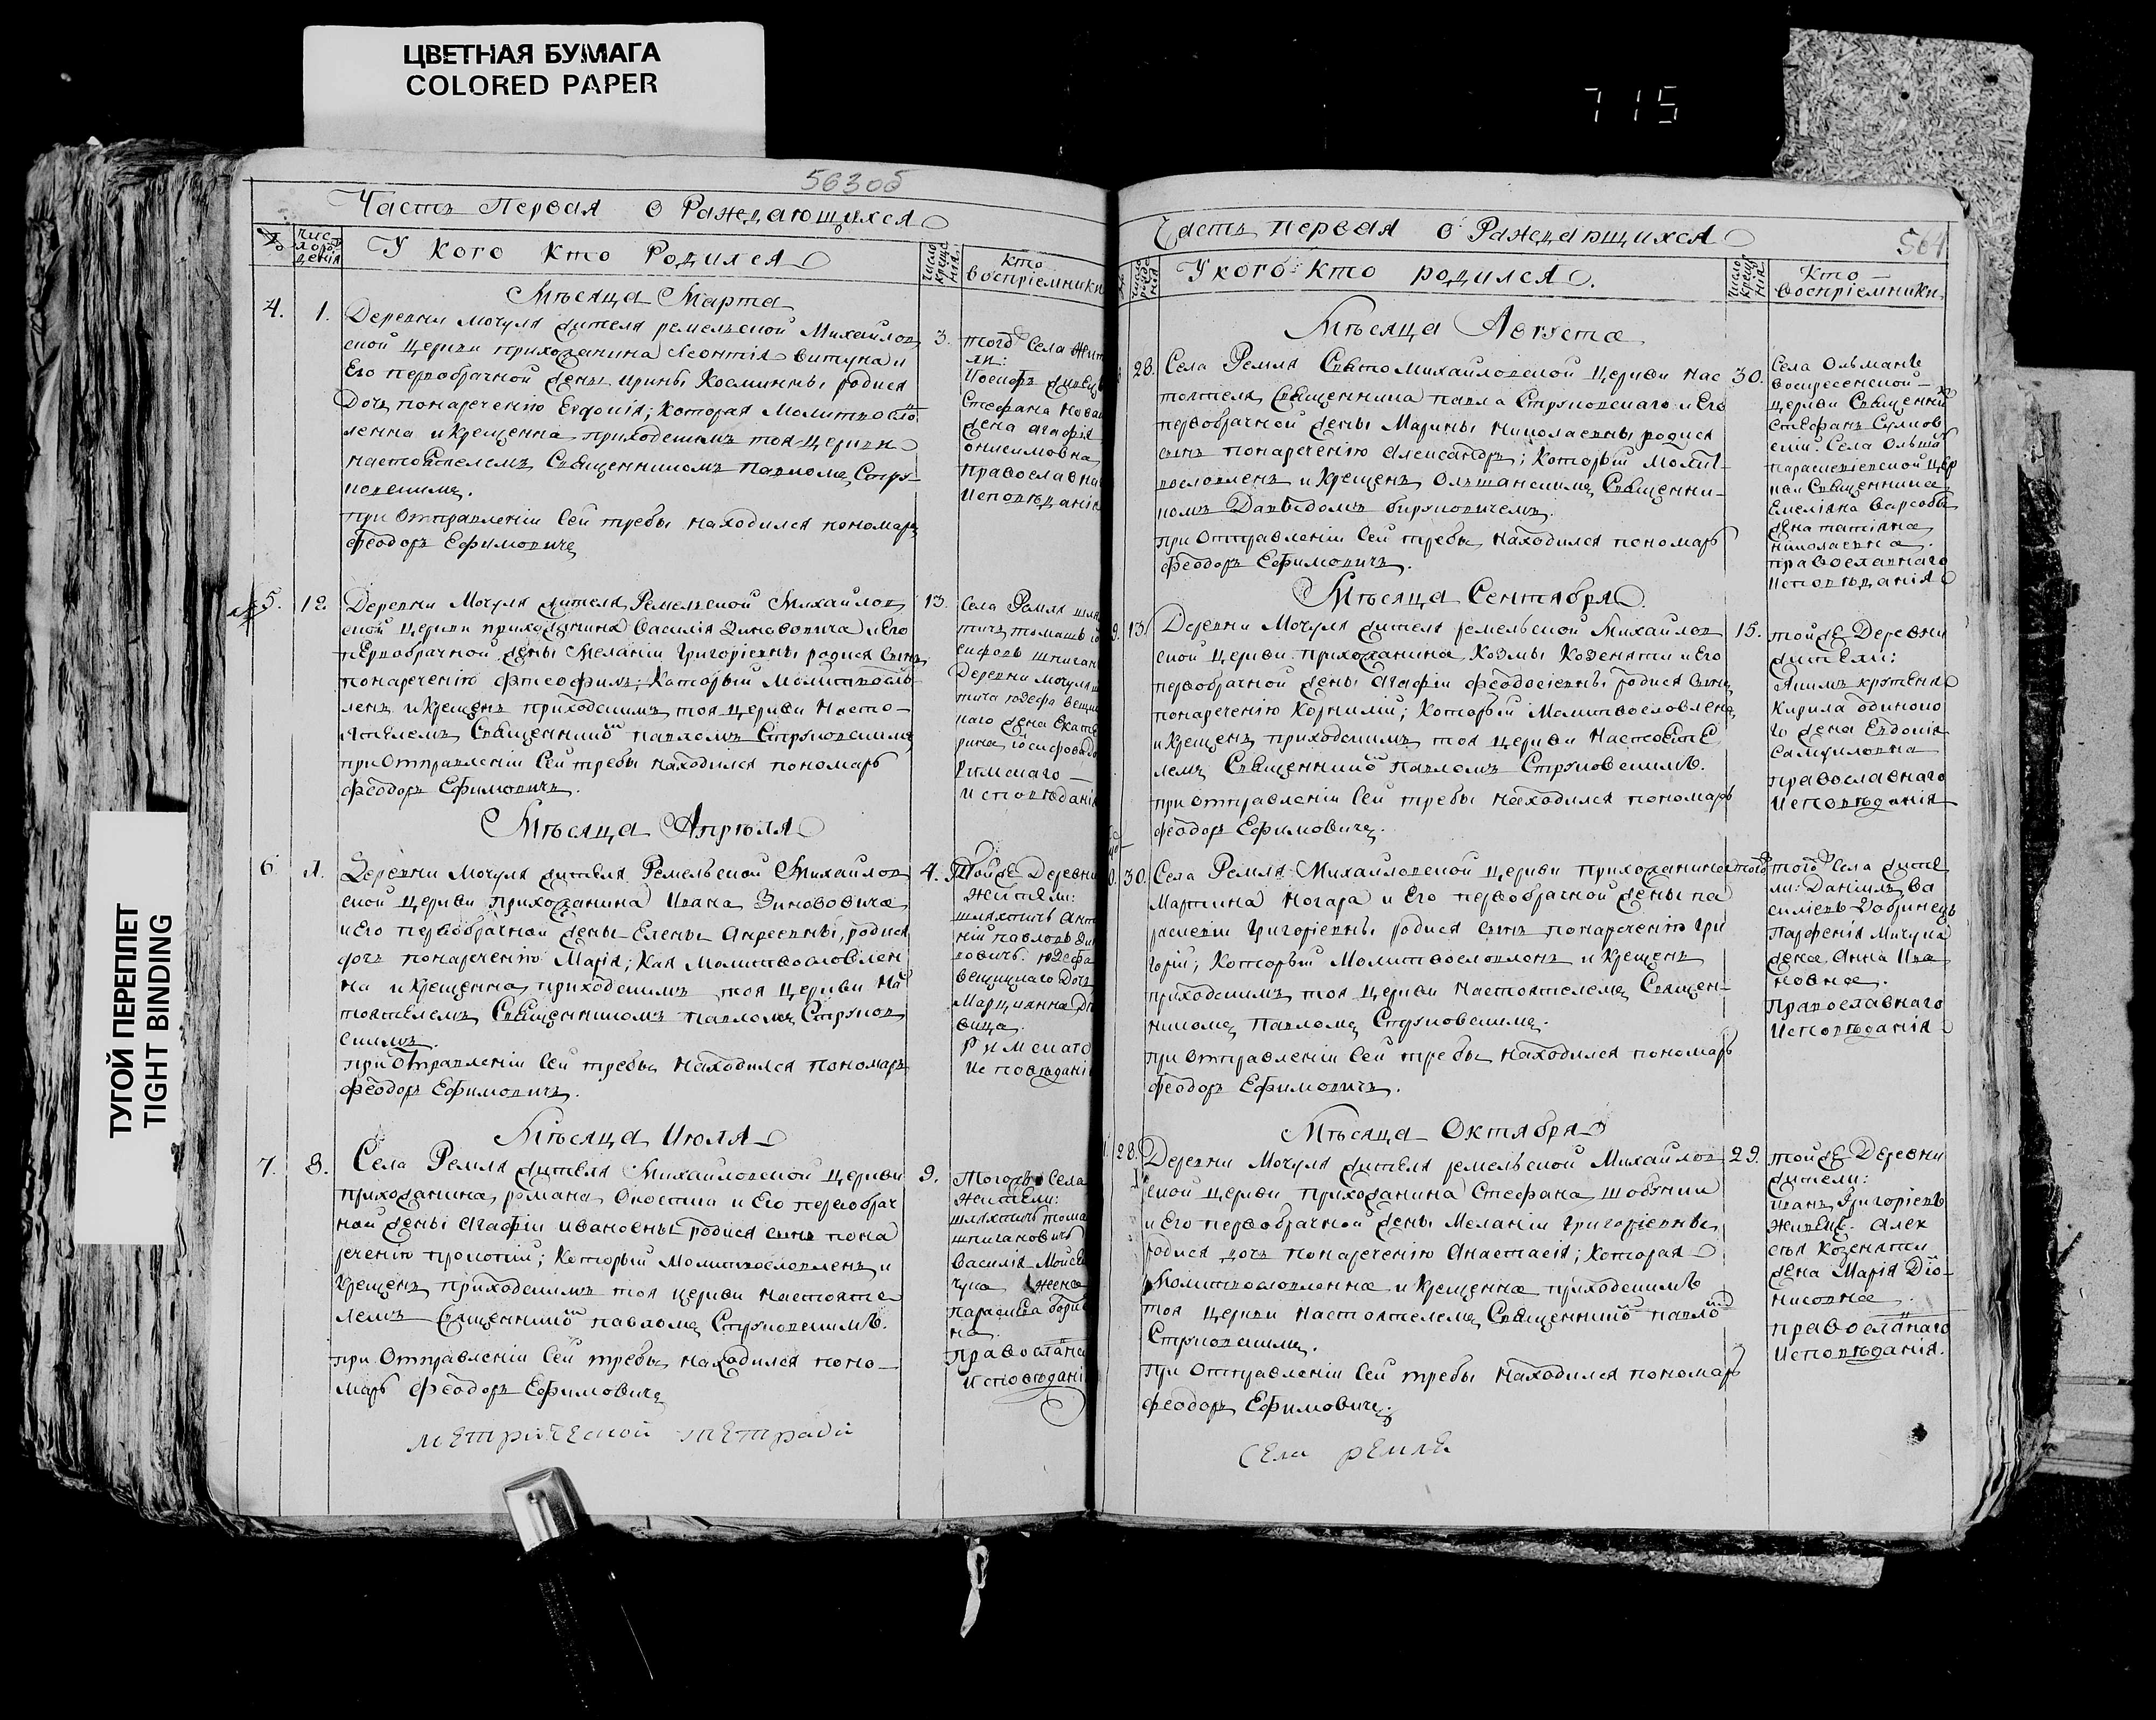 ЦВЕТНАЯ БУМАГА
COLORED PAPER
715
ТУГОЙ ПЕРЕПЛЕТ
TIGHT BINDING
563об
Часть Первая о Раждающихся
№
Число рождения
У кого кто Родился
Число крещения
Кто воспріемники
Мѣсяца Марта
4. 1.
Деревни Мочуля жителя ремельской Михайлов
ской Церкви прихожанина Леонтія Витуна и
Его первобрачной жены Ирины Косминны родися
Дочь понареченію Евдокія; которая Молитвосло
вленна и крещенна приходскимъ тоя Церкви
настоятелемъ Священникомъ Павломъ Стру
ковскимъ.
при Отправленіи Сей требы находился пономарь
Феодоръ Ефимовичъ
3.
тогожъ Села жит
ли:
Іосифъ
Стефана
жена Агафія
Онисимовна
православна
Исповѣданія
5. 12.
Деревни Мочуля жителя Ремельской Михайлов
ской Церкви прихожанина Василія Зиновича и Его
первобрачной жены Меланіи Григоріевны родися Сынъ
понареченію Феофимъ; Который Молитвослов
ленъ и Крещенъ приходскимъ тоя Церкви Насто-
ятелемъ Священнико Павломъ Струковскимъ
при Отправленіи Сей требы находился пономарь
Феодоръ Ефимовичъ.
13.
Села Ремля шля
тичъ томашъ іо
сифовъ шпиган
Деревни Мочуля ш
тича юзефа
наго жена Екате
рина іосифова
Римскаго —
Исповѣданія
Мѣсяца Апрѣля
6
Деревни Мочуля жителя Ремельской Михайлов
ской Церкви прихожанина Ивана Зиновича
и Его первобрачной жены Елены Андреевны, родися
дочь понареченію Марія; Кая Молитвословлен
на и Крещенна приходскимъ тоя Церкви На
тоятелемъ Священникомъ Павломъ Струков
скимъ.
при Отправленіи Сей требы находился пономарь
Феодоръ Ефимовичъ.
4.
Тойже Деревни
жители:
шляхтичъ Анто
ній павловъ Зи
новичъ. юзефа
Дочь
Марціянна Дѣ
вица.
Римскаго
Исповѣдані
Мѣсяца Іюля
7. 8.
Села Ремля жителя Михайловской Церкви
прихожанина романа и Его первобрач
ной жены Агафіи Ивановны родися сынъ пона
реченію прокопій; Который Молитвословленъ и
Крещенъ приходскимъ тоя Церкви настояте
лемъ Священнико павломъ Струковскимъ.
при Отправленіи Сей требы находился поно—
марь Феодоръ Ефимовичъ
9.
Тогожъ Села
жители:
шляхтичъ тома
шпигановичъ
Василія Мойсе
чука жена
параскева бори
на.
Православна
Исповѣдані
метрической тетради
564
Часть первая о Раждающихся
У кого кто родился.
Число крещенія
Кто — воспріемники
Мѣсяца Августа
28.
Села Ремля Свято Михайловской Церкви нас
тоятеля Священника павла Струковскаго и Его
первобрачной жены Марины Николаевны родися
сынъ понареченію Александръ; Который Молит-
вословленъ и Крещенъ Ольшанскимъ Священни-
комъ Давидомъ бируковичемъ.
при Отправленіи Сей требы находился пономарь
Феодоръ Ефимовичъ.
30.
Села Ольманъ
воскресенской —
церкви Священникъ
Стефанъ
скій. Села Ольша
параскевіевской Цер
кви Священника
Емеліана
жена татіана
николаевна.
православнаго
Исповѣданія
Мѣсяца Сентября
9. 13.
Деревни Мочуля жителя ремельской Михайлов
ской Церкви прихожанина Козмы Козенятки и Его
первобрачной жены Агафіи Феодосіевны родися сынъ
понареченію Корнилій; Который Молитвословленъ
и Крещенъ приходскимъ тоя Церкви Настояте
лемъ Священнико Павломъ Струковскимъ.
при отправленіи Сей требы находился пономарь
Феодоръ Ефимовичъ.
15.
тойже Деревни
жители:
Акимъ
Кирила
го жена Евдокія
Самуиловна
православнаго
Исповѣданія
30.
Села Ремля Михайловской Церкви прихожанина
Мартина Когара и Его первобрачной жены па
раскевіи Григоріевны родися сынъ понареченію Гри
горій; Который Молитвословленъ и Крещенъ
приходскимъ тоя Церкви Настоятелемъ Священ-
никомъ Павломъ Струковскимъ.
при Отправленіи Сей требы находился пономарь
Феодоръ Ефимовичъ.
тогожъ Села жите
ли: Даніилъ Ва
силіевъ Добринецъ
Парфенія Мичуна
жена Анна Ива
новна.
Православнаго
Исповѣданія
Мѣсяца Октября
28.
Деревни Мочуля жителя ремельской Михайлов
ской Церкви прихожанина Стефана
и Его первобрачной жены Меланіи Григоріевны
родися дочь понареченію Анастасія; Которая
Молитвословленна и Крещенна приходскимъ
тоя Церкви настоятелемъ Священнико павло
Струковскимъ.
При Отправленіи Сей требы находился пономарь
Феодоръ Ефимовичъ.
29.
тойже Деревни
жители:
иванъ Григоріевъ
Алек
сѣя Козенятки
жена Марія Діо-
нисовна.
православнаго
Исповѣданія.
Села ремля